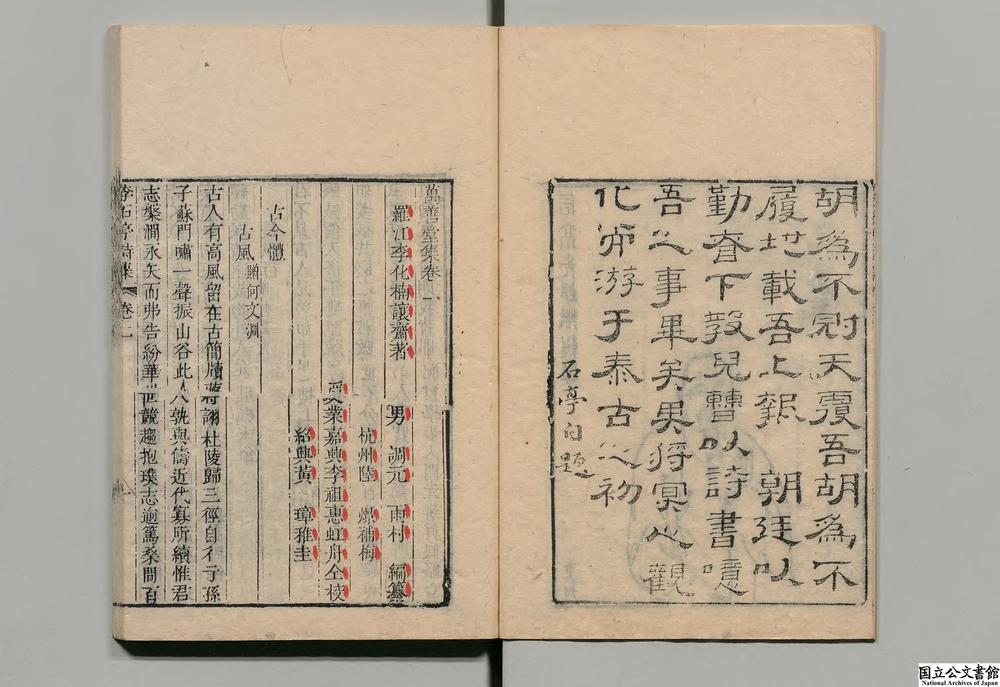 胡爲不則天覆吾胡爲不
履地載吾上報　朝廷以
勤耷下教兒曹以詩書噫
吾之事畢矣吾將冥心觀
化而游于泰古之初
石亭自題
萬善堂集卷一
羅江李化楠讓齋著
男　調元　雨村　編纂
杭州陸　燦補梅
受業嘉興李祖惠虹舟仝校
紹興黃　璋稚圭
古今體
古風贈何文淵
古人有高風留在古簡牘蔣詡杜陵歸三徑自孑孫
子蘇門嘯一聲振山谷此人孰與儔近代寡所續惟君
志槃澗永矢而弗告紛華世競趨抱璞志逾篤桑間百
李石亭詩集　卷一
国立公文書館
National Archives of Japan